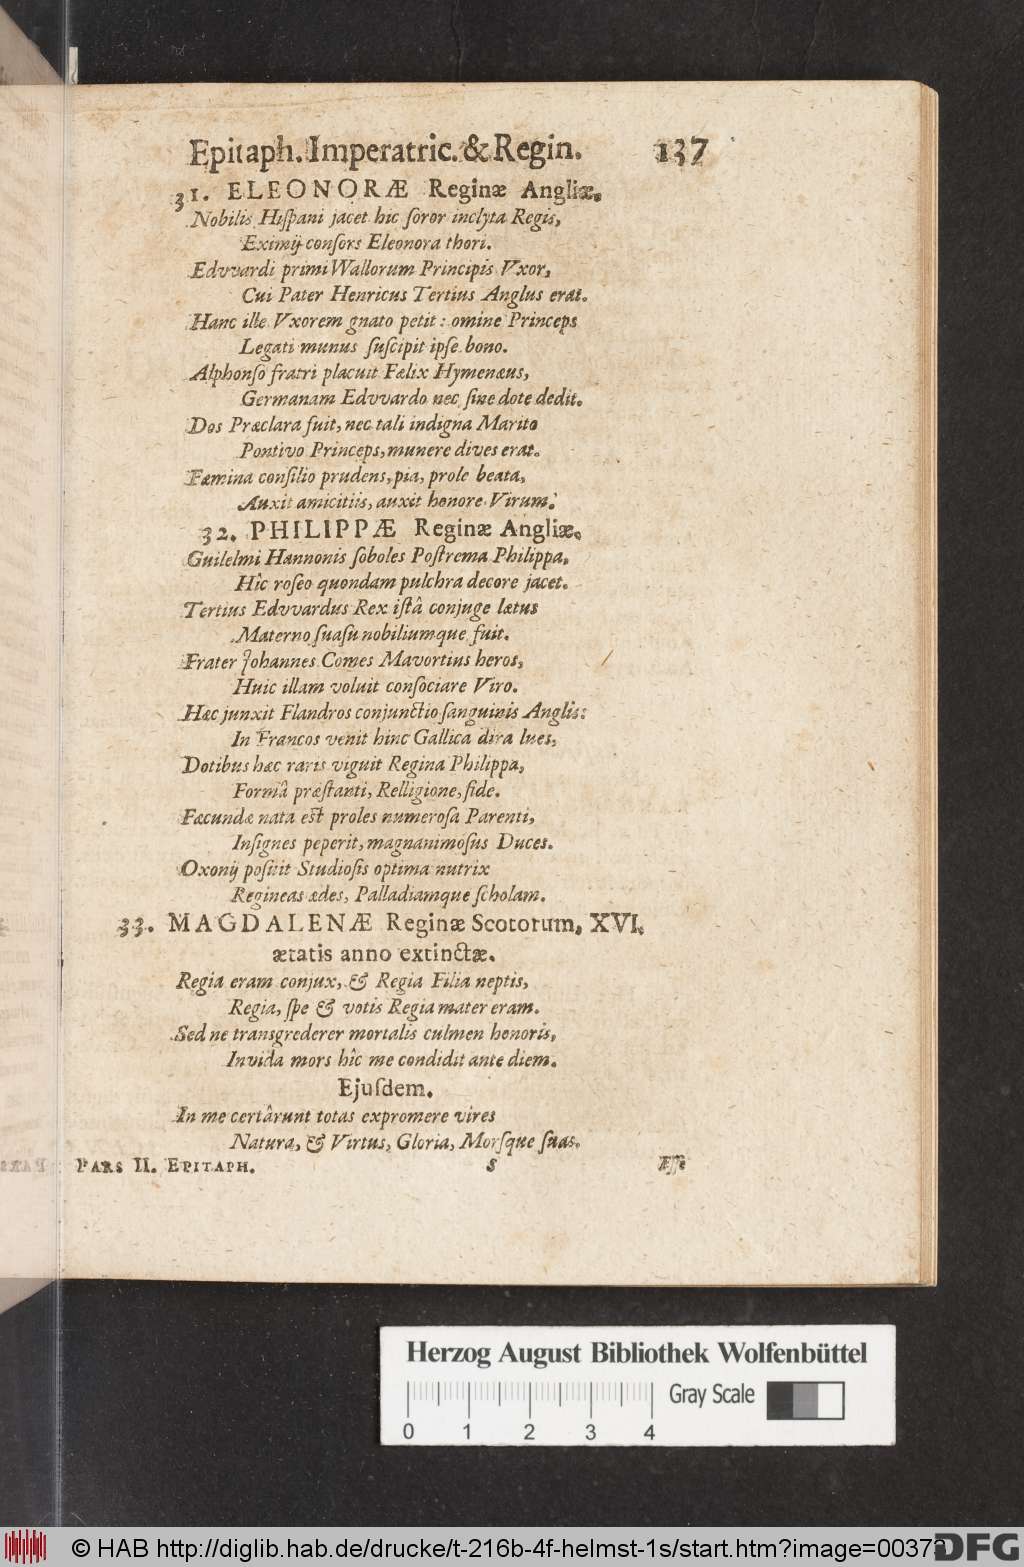 Epitaph. Imperatric. & Regin. 137
31. ELEONORÆ Reginæ Angliæ.
Nobilis Hiſpani jacet hic ſoror inclyta Regis,
Eximij conſors Eleonora thori.
Edvvardi primi Wallorum Principis Vxor,
Cui Pater Henricus Tertius Anglus erat.
Hanc ille Vxorem gnato petit: omine Princeps
Legati munus ſuſcipit ipſe bono.
Alphonſo fratri placuit Fælix Hymenæus,
Germanam Edvvardo nec ſine dote dedit.
Dos Præclara fuit, nec tali indigna Marito
Pontivo Princeps, munere dives erat.
Fæmina conſilio prudens, pia, prole beata,
Auxit amicitiis, auxit honore Virum.
32. PHILIPPÆ Reginæ Angliæ.
Guilelmi Hannonis ſoboles Poſtrema Philippa,
Hîc roſeo quondam pulchra decore jacet.
Tertius Edvvardus Rex iſtâ conjuge lætus
Materno ſuaſu nobiliumque fuit.
Frater Johannes Comes Mavortius heros,
Huic illam voluit conſociare Viro.
Hæc junxit Flandros conjunctio ſanguinis Anglis:
In Francos venit hinc Gallica dira lues,
Dotibus hæc raris viguit Regina Philippa,
Formâ præſtanti, Relligione, fide.
Fæcundæ nata eſt proles numeroſa Parenti,
Inſignes peperit, magnanimoſus Duces.
Oxonij poſuit Studioſis optima nutrix
Regineas ædes, Palladiamque ſcholam.
33. MAGDALENÆ Reginæ Scotorum, XVI.
ætatis anno extinctæ.
Regia eram conjux, & Regia Filia neptis,
Regia, ſpe & votis Regia mater eram.
Sed ne transgrederer mortalis culmen honoris,
Invida mors hîc me condidit ante diem.
Ejuſdem.
In me certârunt totas expromere vires
Natura, & Virtus, Gloria, Morſque ſuas.
PARS II. EPITAPH. S Æſſ
Herzog August Bibliothek Wolfenbüttel
Gray Scale
0 1 2 3 4
© HAB http://diglib.hab.de/drucke/t-216b-4f-helmst-1s/start.htm?image=00373
DFG